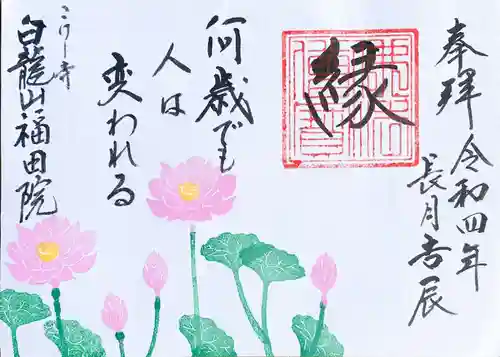 奉拝
令和四年
長月吉辰
縁
何歳でも
人は
変われる
こけし寺
白龍山福田院